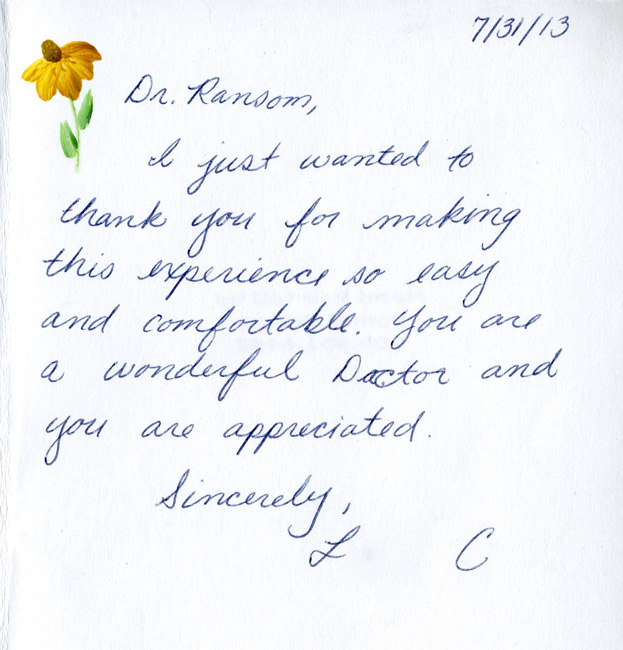 7/31/13
Dr. Ransom,
I just wanted to
thank you for making
this experience so easy
and comfortable. You are
a wonderful Doctor and
you are appreciated.
Sincerely,
L C